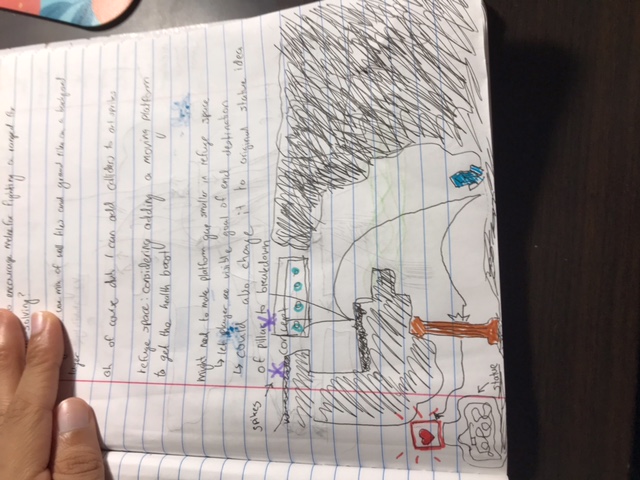 to encourage melee for fighting or ranged for
solving?
use mix of wall tiles and ground tiles on a background
layer
oh of course duh I can add colliders to art sprites
refuge space: considering adding a moving platform
to get the health boost
might need to make platform gap smaller in refuge space
↳ let player see visible goal of end destination
↳ could also change it to original statue idea
of pillar to breakdown
spikes
concept
statue